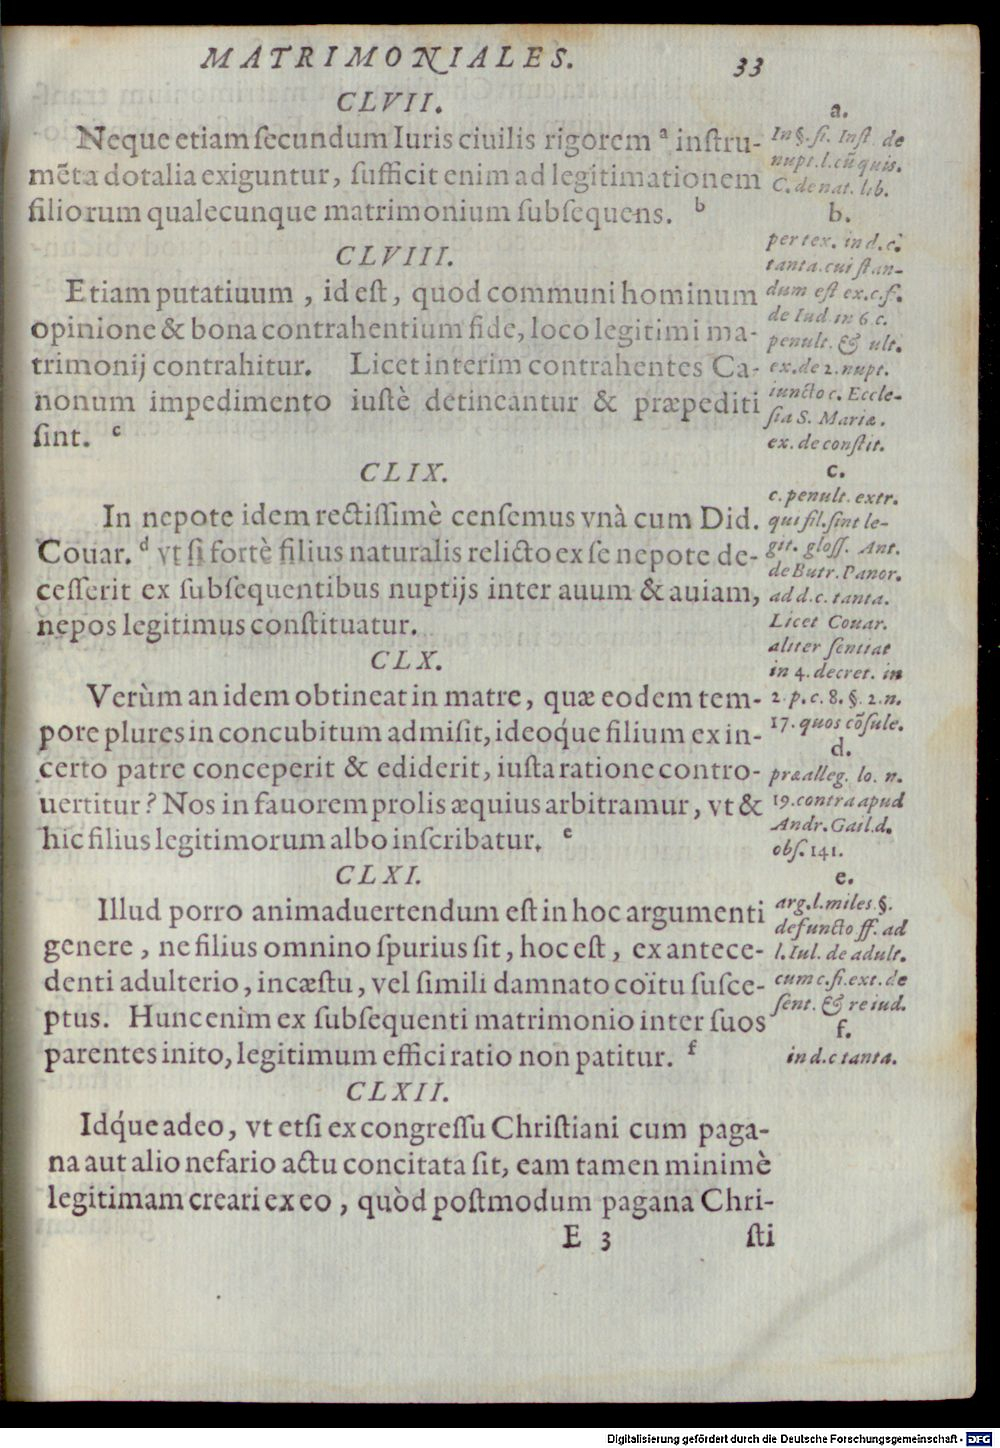 MATRIMONIALES. 33
CLVII.
Neque etiam ſecundum Iuris ciuilis rigorem a inſtru-
mẽta dotalia exiguntur, ſufficit enim ad legitimationem
filiorum qualecunque matrimonium ſubſequens. b
CLVIII.
Etiam putatiuum , id eſt, quod communi hominum
opinione & bona contrahentium fide, loco legitimi ma-
trimonij contrahitur. Licet interim contrahentes Ca-
nonum impedimento iuſtè detineantur & præpediti
ſint. c
CLIX.
In nepote idem rectiſſimè cenſemus vnà cum Did.
Couar. d vt ſi fortè filius naturalis relicto ex ſe nepote de-
ceſſerit ex ſubſequentibus nuptijs inter auum & auiam,
nepos legitimus conſtituatur.
CLX.
Verùm an idem obtineat in matre, quæ eodem tem-
pore plures in concubitum admiſit, ideoq́ue filium ex in-
certo patre conceperit & ediderit, iuſta ratione contro-
uertitur? Nos in fauorem prolis æquius arbitramur, vt &
hic filius legitimorum albo inſcribatur. e
CLXI.
Illud porro animaduertendum eſt in hoc argumenti
genere , ne filius omnino ſpurius ſit, hoc eſt, ex antece-
denti adulterio, incæſtu, vel ſimili damnato coïtu ſuſce-
ptus. Hunc enim ex ſubſequenti matrimonio inter ſuos
parentes inito, legitimum effici ratio non patitur. f
CLXII.
Idq́ue adeo, vt etſi ex congreſſu Chriſtiani cum paga-
na aut alio nefario actu concitata ſit, eam tamen minimè
legitimam creari ex eo , quòd poſtmodum pagana Chri-
E 3 ſti
a.
In §. ſi. Inſt. de
nupt. l. cũ quis.
C. de nat. lib.
b.
per tex. in d. c.
tanta. cui ſtan-
dum eſt ex. c. f.
de Iud. in 6. c.
penult. & ult.
ex. de 2. nupt.
iuncto c. Eccle-
ſia S. Mariæ.
ex. de conſtit.
c.
c. penult. extr.
qui fil. ſint le-
git. gloſſ. Ant.
de Butr. Panor.
ad d. c. tanta.
Licet Couar.
aliter ſentiat
in 4. decret. in
2. p. c. 8. §. 2. n.
17. quos cõſule.
d.
præalleg. lo. n.
19. contra apud
Andr. Gail. d.
obſ. 141.
e.
arg. l. miles §.
defuncto ff. ad
l. Iul. de adult.
cum c. ſi. ext. de
ſent. & re iud.
f.
in d. c tanta.
Digitalisierung gefördert durch die Deutsche Forschungsgemeinschaft - DFG